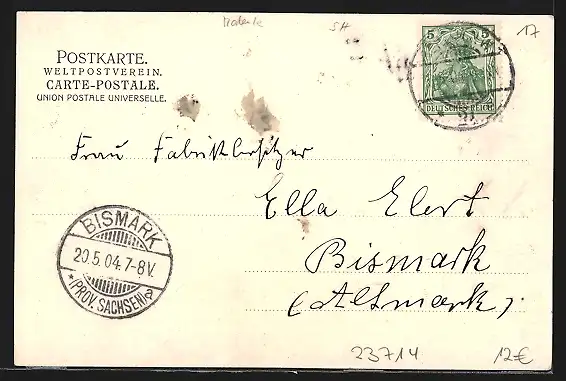 SH
17
POSTKARTE.
WELTPOSTVEREIN.
CARTE-POSTALE.
UNION POSTALE UNIVERSELLE.
5 5
DEUTSCHES REICH
Frau Fabrikbesitzer
Ella Elert
Bismark
(Altmark).
BISMARK
20.5.04.7-8V.
*(PROV. SACHSEN)a
23714
12€